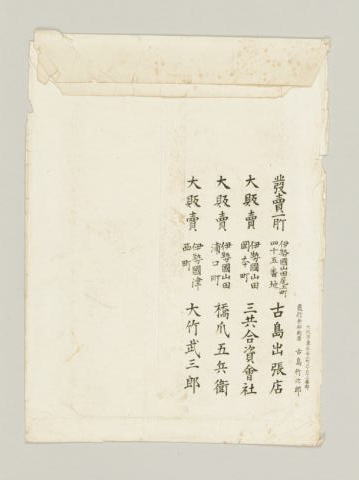 發行者印刷者 古島竹次郎
發賣所 伊勢國山田尾上町四十五番地 古島出張店
大販賣 伊勢國山田岡本町 三共合資會社
大販賣 伊勢國山田浦口町 橋爪五兵衛
大販賣 伊勢國津西町 大竹武三郎